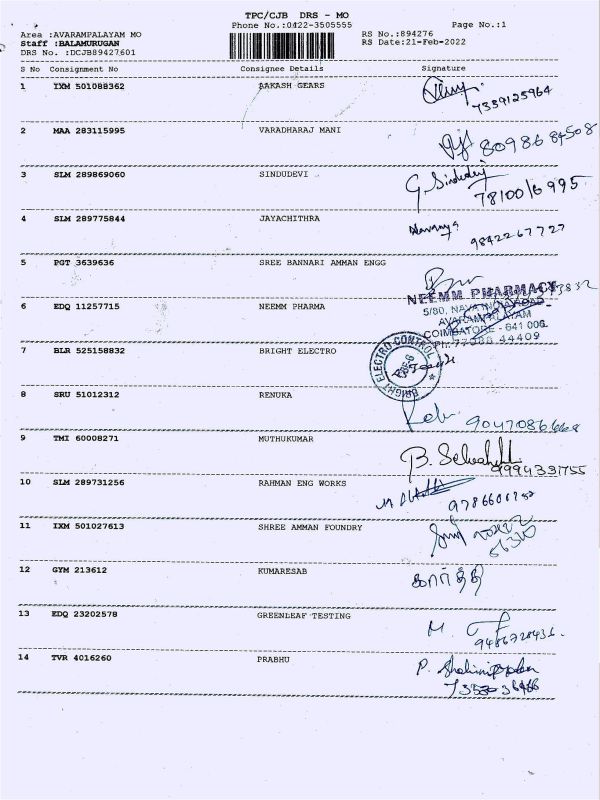 TPC/CJB DRS - MO
Phone No.:0422-3505555 Page No.:1
Area :AVARAMPALAYAM MO RS No.:894276
Staff :BALAMURUGAN RS Date:21-Feb-2022
DRS No. :DCJB89427601
S No Consignment No Consignee Details Signature
1 IXM 501088362 AAKASH GEARS
7339125964
2 MAA 283115995 VARADHARAJ MANI
3 SLM 289869060 SINDUDEVI G. Sindudevi
7810016995
4 SLM 289775844 JAYACHITHRA
9842267727
5 PGT 3639636 SREE BANNARI AMMAN ENGG
6 EDQ 11257715 NEEMM PHARMA NEEMM PHARMACY
5/80, NAVA INDIA ROAD
AVARAMPALAYAM
COIMBATORE - 641 006.
44409
7 BLR 525158832 BRIGHT ELECTRO BRIGHT ELECTRO CONTROL
8 SRU 51012312 RENUKA
9047086668
9 TMI 60008271 MUTHUKUMAR
9994331755
10 SLM 289731256 RAHMAN ENG WORKS
11 IXM 501027613 SHREE AMMAN FOUNDRY
12 GYM 213612 KUMARESAB கார்த்தி
13 EDQ 23202578 GREENLEAF TESTING M.
14 TVR 4016260 PRABHU P.